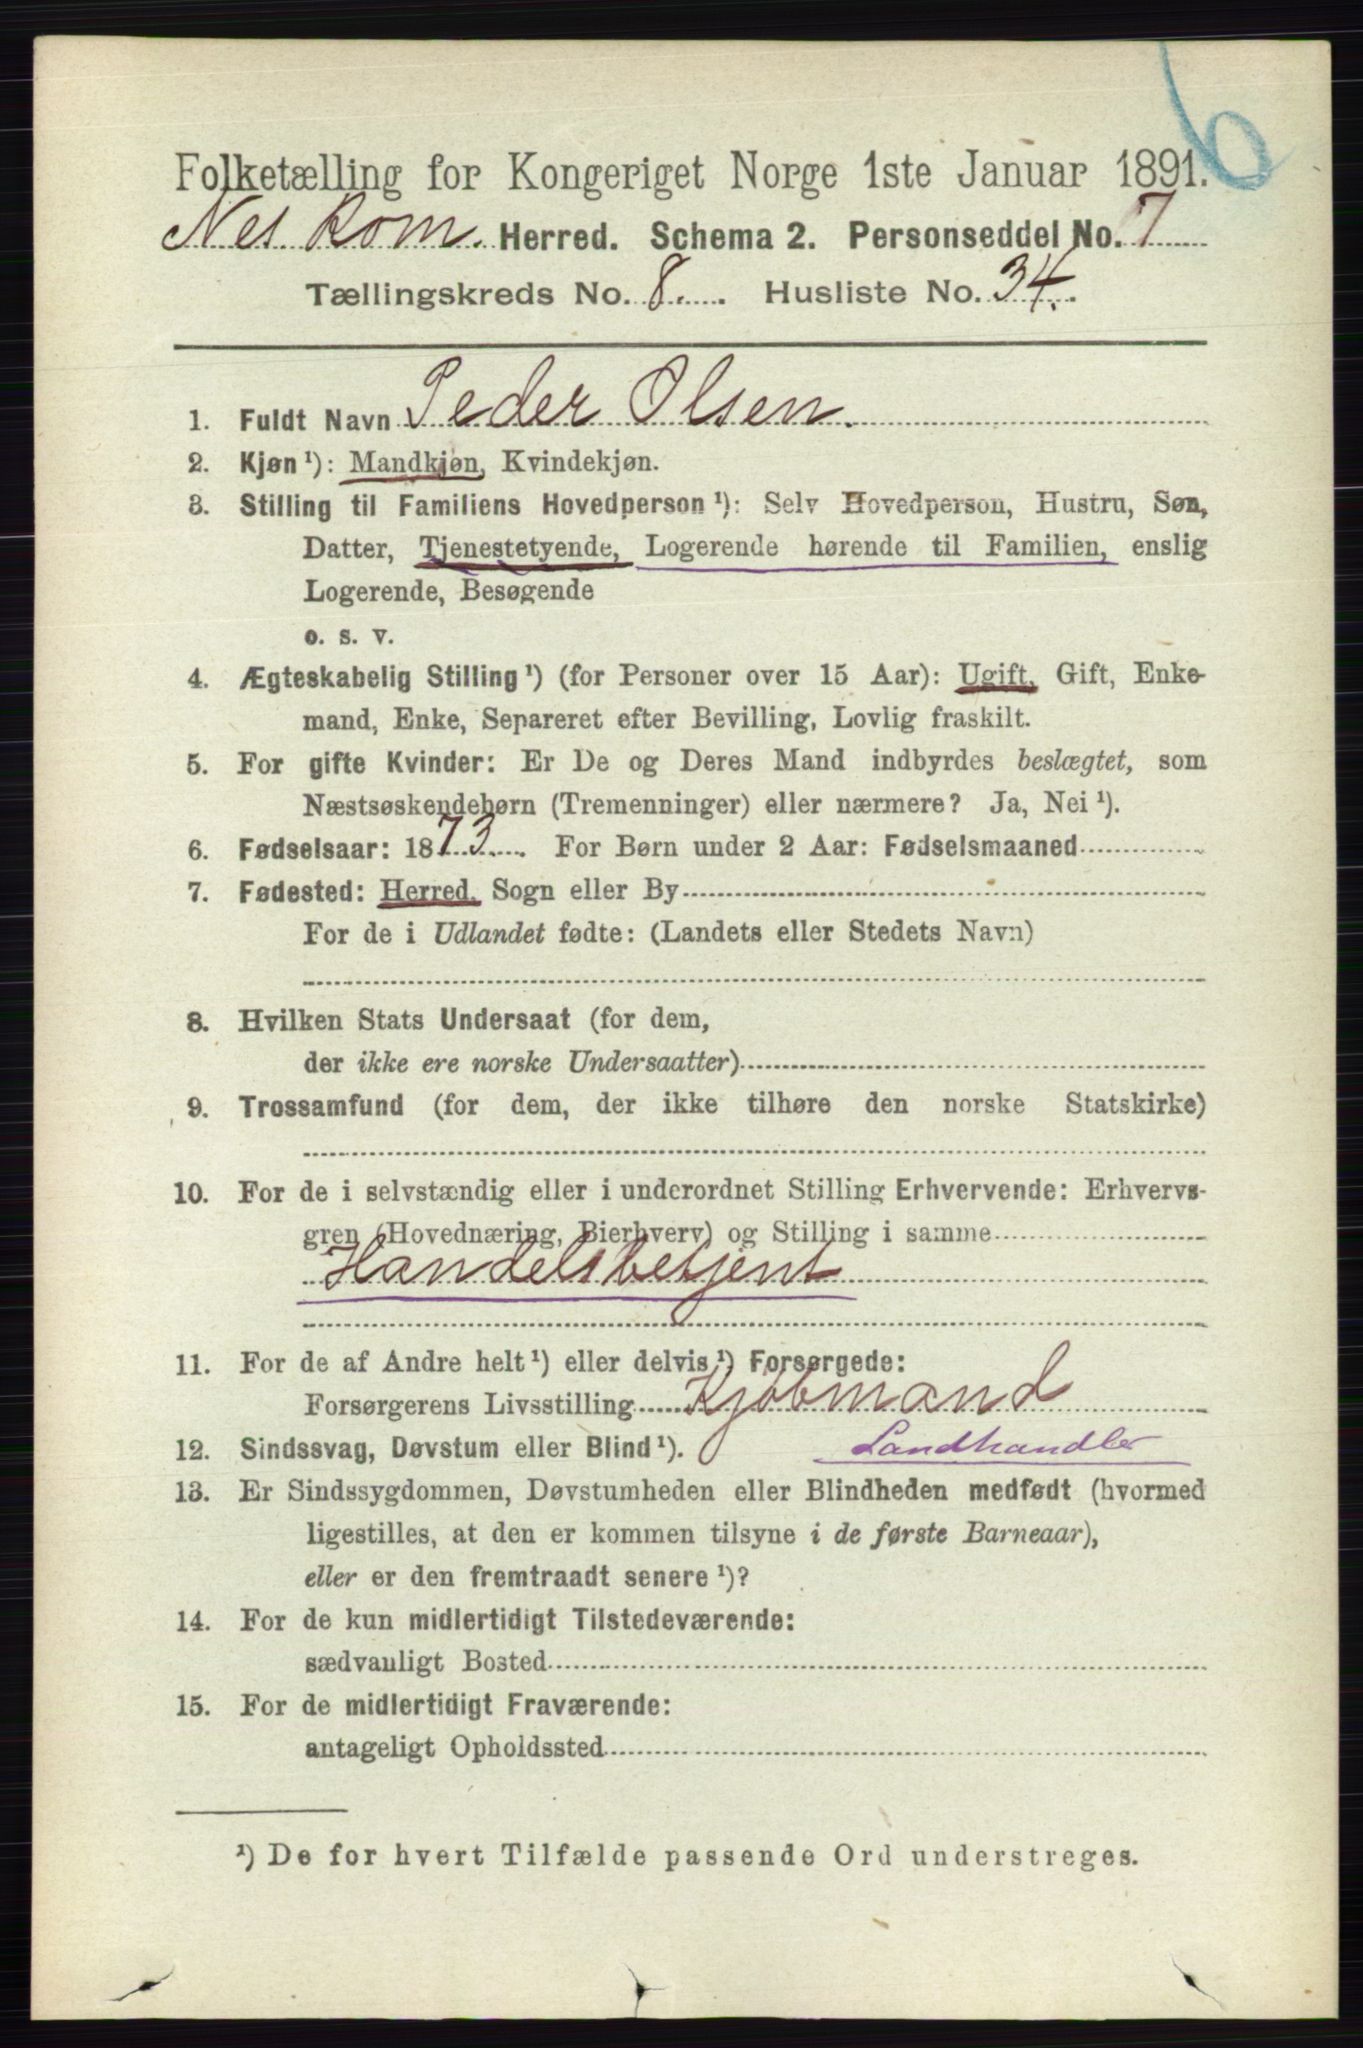 6
Folketælling for Kongeriget Norge 1ste Januar 1891.
Nes Rom. Herred. Schema 2. Personseddel No. 7
Tællingskreds No. 8. Husliste No. 34.
1. Fuldt Navn Peder Olsen.
2. Kjøn ¹): Mandkjøn, Kvindekjøn.
3. Stilling til Familiens Hovedperson ¹): Selv Hovedperson, Hustru, Søn,
Datter, Tjenestetyende, Logerende hørende til Familien, enslig
Logerende, Besøgende
o. s. v.
4. Ægteskabelig Stilling ¹) (for Personer over 15 Aar): Ugift, Gift, Enke-
mand, Enke, Separeret efter Bevilling, Lovlig fraskilt.
5. For gifte Kvinder: Er De og Deres Mand indbyrdes beslægtet, som
Næstsøskendebørn (Tremenninger) eller nærmere? Ja, Nei ¹).
6. Fødselsaar: 1873. For Børn under 2 Aar: Fødselsmaaned
7. Fødested: Herred, Sogn eller By
For de i Udlandet fødte: (Landets eller Stedets Navn)
8. Hvilken Stats Undersaat (for dem,
der ikke ere norske Undersaatter)
9. Trossamfund (for dem, der ikke tilhøre den norske Statskirke)
10. For de i selvstændig eller i underordnet Stilling Erhvervende: Erhvervs-
gren (Hovednæring, Bierhverv) og Stilling i samme
Handelsbetjent
11. For de af Andre helt ¹) eller delvis ¹) Forsørgede:
Forsørgerens Livsstilling Kjøbmand
12. Sindssvag, Døvstum eller Blind ¹). Landhandler
13. Er Sindssygdommen, Døvstumheden eller Blindheden medfødt (hvormed
ligestilles, at den er kommen tilsyne i de første Barneaar),
eller er den fremtraadt senere ¹)?
14. For de kun midlertidigt Tilstedeværende:
sædvanligt Bosted
15. For de midlertidigt Fraværende:
antageligt Opholdssted
¹) De for hvert Tilfælde passende Ord understreges.